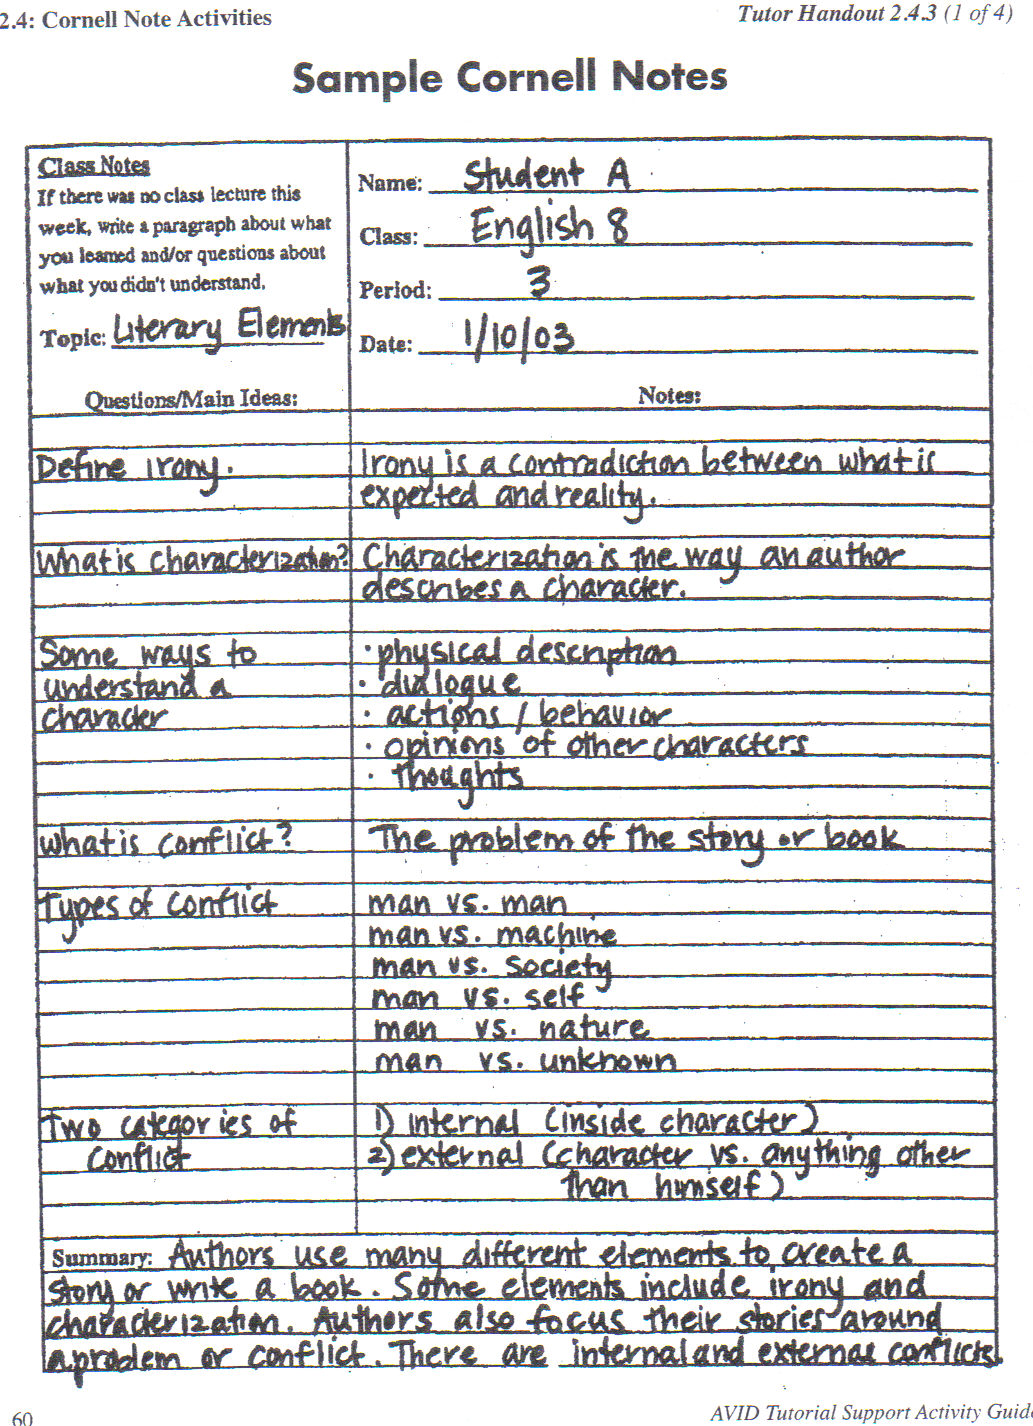 2.4: Cornell Note Activities
Tutor Handout 2.4.3 (1 of 4)
Sample Cornell Notes
Class Notes
If there was no class lecture this
week, write a paragraph about what
you learned and/or questions about
what you didn't understand.
Topic: Literary Elements
Name: Student A
Class: English 8
Period: 3
Date: 1/10/03
Questions/Main Ideas:
Notes:
Define irony.
Irony is a contradiction between what is
expected and reality.
What is characterization?
Characterization is the way an author
describes a character.
Some ways to
understand a
character
· physical description
· dialogue
· actions / behavior
· opinions of other characters
· thoughts
What is conflict?
The problem of the story or book
Types of conflict
man vs. man
man vs. machine
man vs. society
man vs. self
man vs. nature
man vs. unknown
Two categories of
conflict
1) internal (inside character)
2) external (character vs. anything other
than himself)
Summary: Authors use many different elements to create a
story or write a book. Some elements include irony and
characterization. Authors also focus their stories around
a problem or conflict. There are internal and external conflicts.
60
AVID Tutorial Support Activity Guide